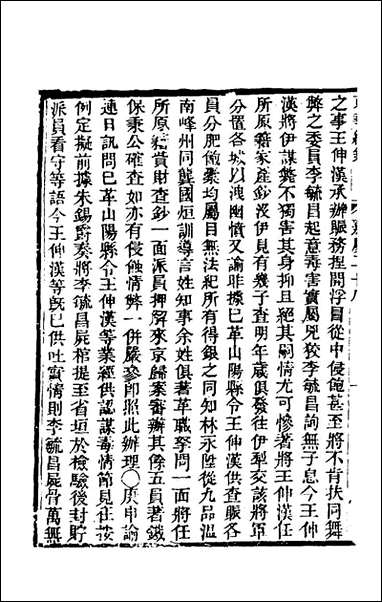 之事王伸漢承辦賑務捏開浮冒從中侵飽甚至將不肯扶同舞
弊之委員李毓昌起意毒害實屬兇狡李毓昌詢無子息今王伸
漢將伊謀斃不獨害其身抑且絕其嗣情尤可慘著將王伸漢任
所原籍家產鈔沒伊見有幾子查明年歲俱發往伊犁交該將軍
分置各城以洩幽憤又諭昨據已革山陽縣令王伸漢供查賑各
員分肥僟橐均屬目無法紀所有得銀之同知林永陞從九品溫
南峰州同龔國烜訓導言姓知事余姓俱著革職拏問一面將任
所原籍貲財查鈔一面派員押解來京歸案審辦其餘五員著鐵
保秉公確查如亦有侵蝕情弊一併嚴參卽照此辦理○庚申諭
連日訊問已革山陽縣令王伸漢等業經供認謀毒情節見在按
例定擬前據朱錫爵奏將李毓昌屍棺提至省垣於檢驗後封貯
派員看守等語今王伸漢等旣已供吐實情則李毓昌屍骨萬無